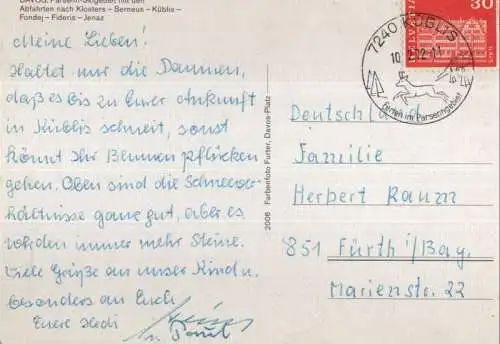 DAVOS: Parsenn-Skigebiet mit den
Abfahrten nach Klosters – Serneus – Küblis –
Fondej – Fideris – Jenaz
Meine Lieben!
Haltet nur die Daumen,
daß es bis zu Eurer Ankunft
in Küblis schneit, sonst
könnt Ihr Blumen pflücken
gehen. Oben sind die Schneever-
hältnisse ganz gut, aber es
werden immer mehr Steine.
Viele Grüße an unser Kind u.
besonders an Euch
Eure Hedi
u.
2006 Farbenfoto Furter, Davos-Platz
HELVETIA
30
7240 KÜBLIS
10.
Ferien im Parsenngebiet
Deutschland
Familie
Herbert Raum
851 Fürth i/Bay.
Marienstr. 22